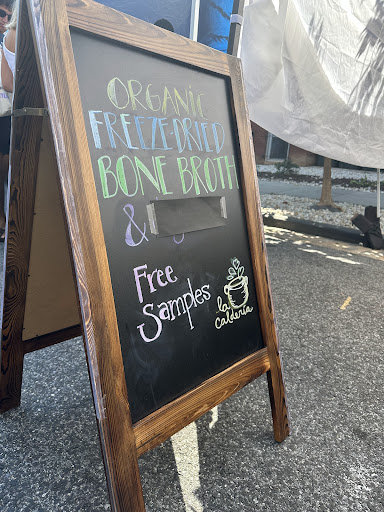 ORGANIC
FREEZE-DRIED
BONE BROTH
&
Free
Samples
la
Calderia